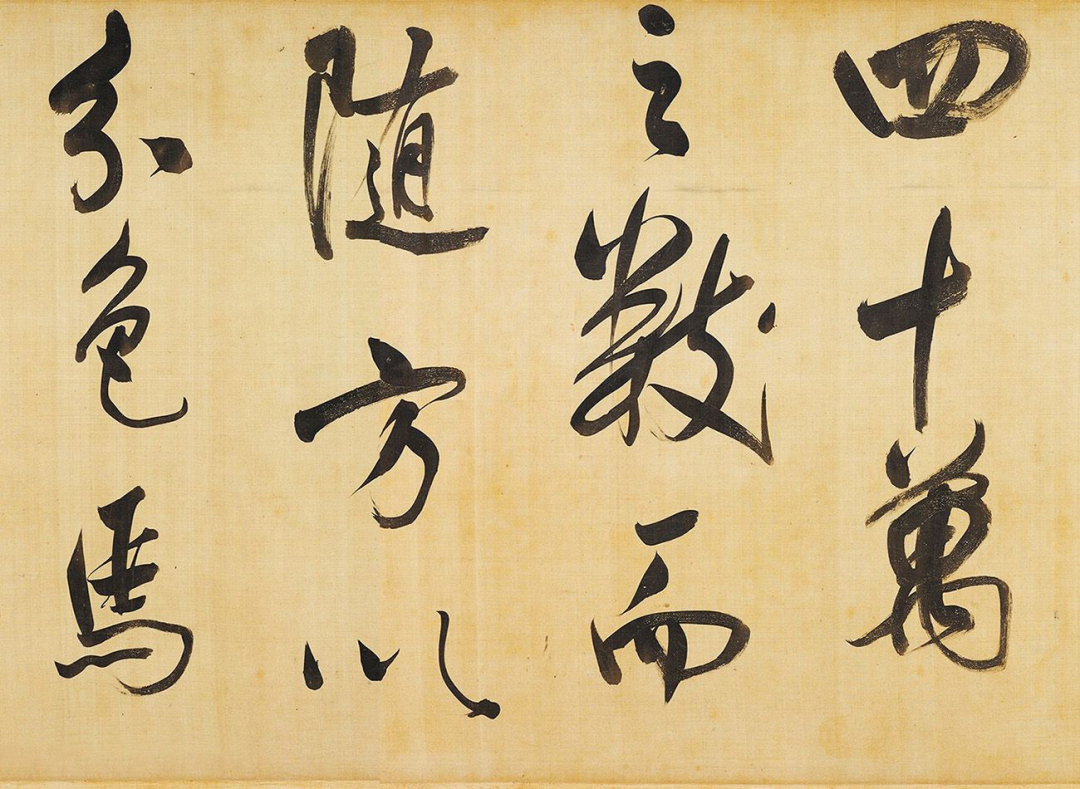 四十萬
之數而
随方以
分色馬